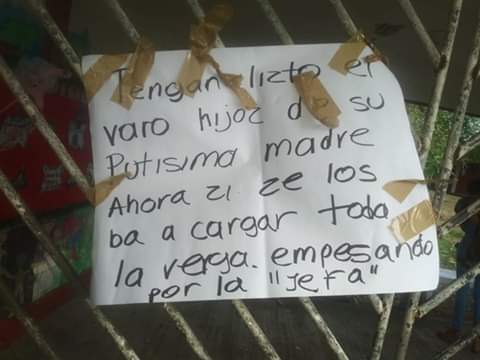 Tengan lizto el
varo hijoz de su
Putisima madre
Ahora zi ze los
ba a cargar toda
la verga. empesando
por la "jefa"